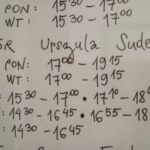 PON: 15³⁰ - 17⁰⁰
WT: 15³⁰ - 17⁰⁰
SR Urszula Sude
PON: 17⁰⁰ - 19¹⁵
WT: 17⁰⁰ - 19¹⁵
: 15³⁰ - 17⁰⁰ • 17¹⁰ - 18
: 14³⁰ - 16⁴⁵ • 16⁵⁵ - 18
: 14³⁰ - 16⁴⁵